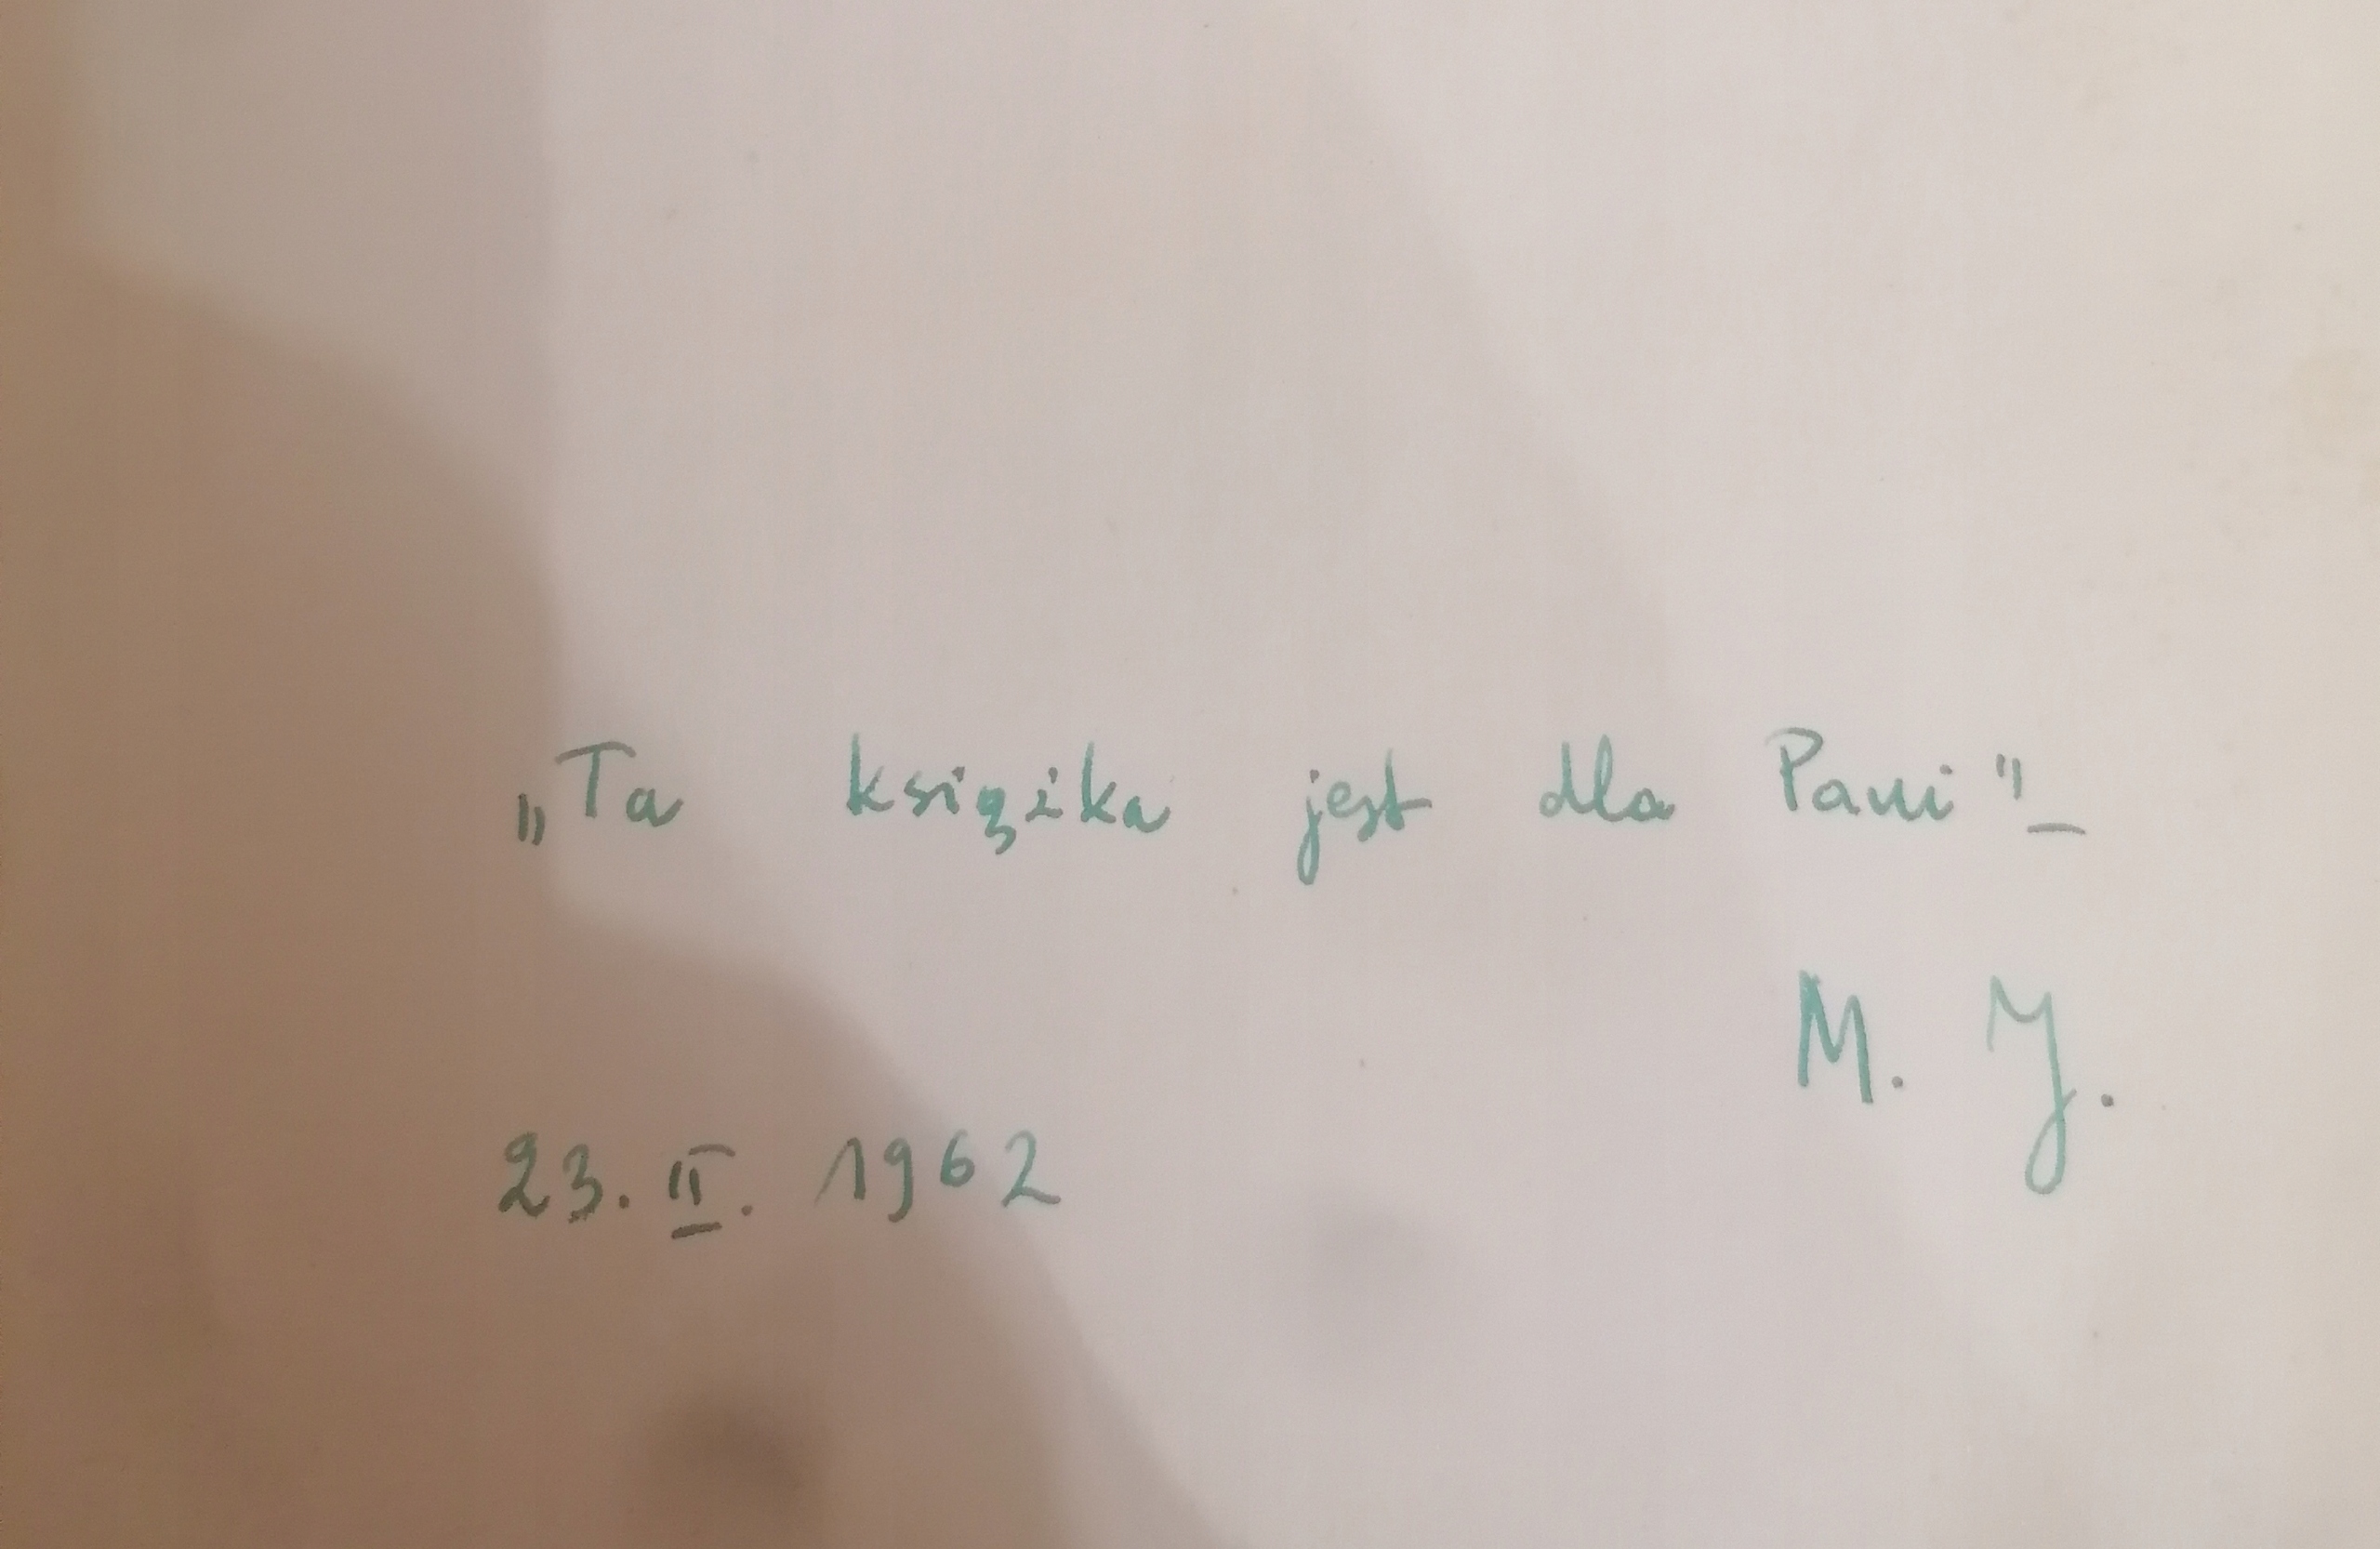 „Ta książka jest dla Pani"_
M. J.
23. II. 1962